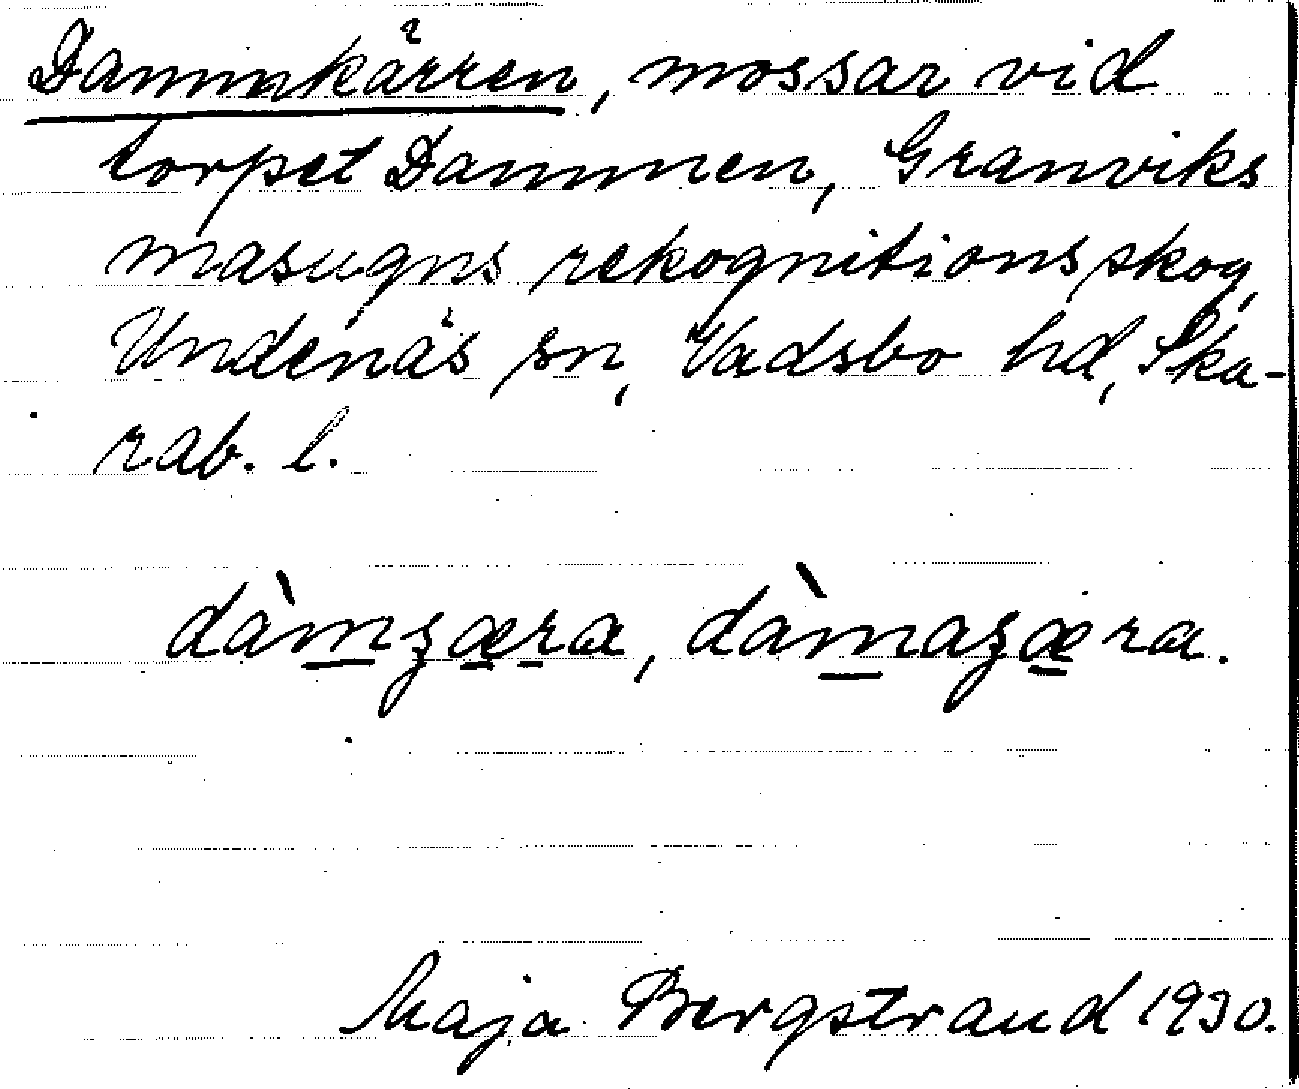 Dammkärren, mossar vid
torpet Dammen, Granviks
masugns rekognitionsskog,
Undenäs sn, Vadsbo hd, Ska-
rab. l.
dàmʒæra, dàmaʒæra.
Maja Bergstrand 1930.